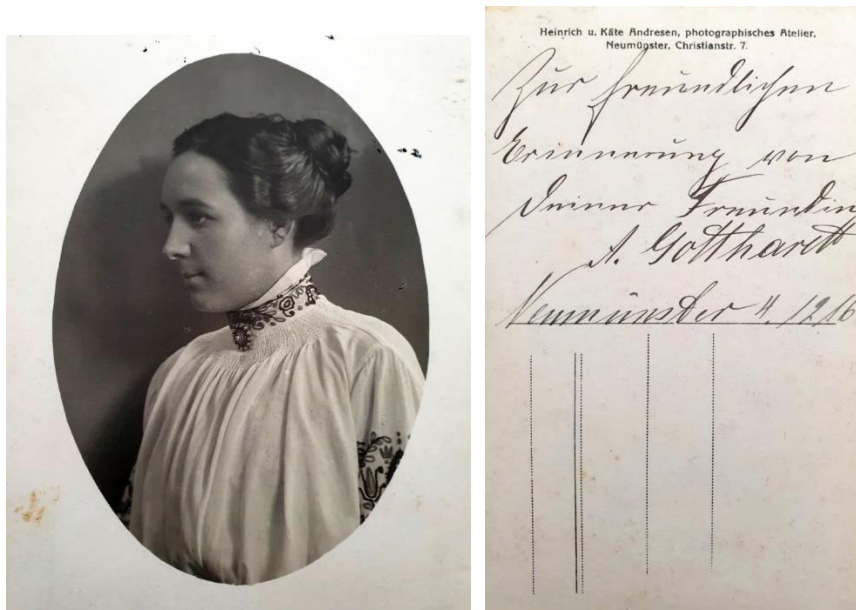 Heinrich u. Käte Andresen, photographisches Atelier,
Neumünster, Christianstr. 7.
Zur freundlichen
Erinnerung von
Deiner Freundin
A. Gotthardt
Neumünster 4. 12. 16